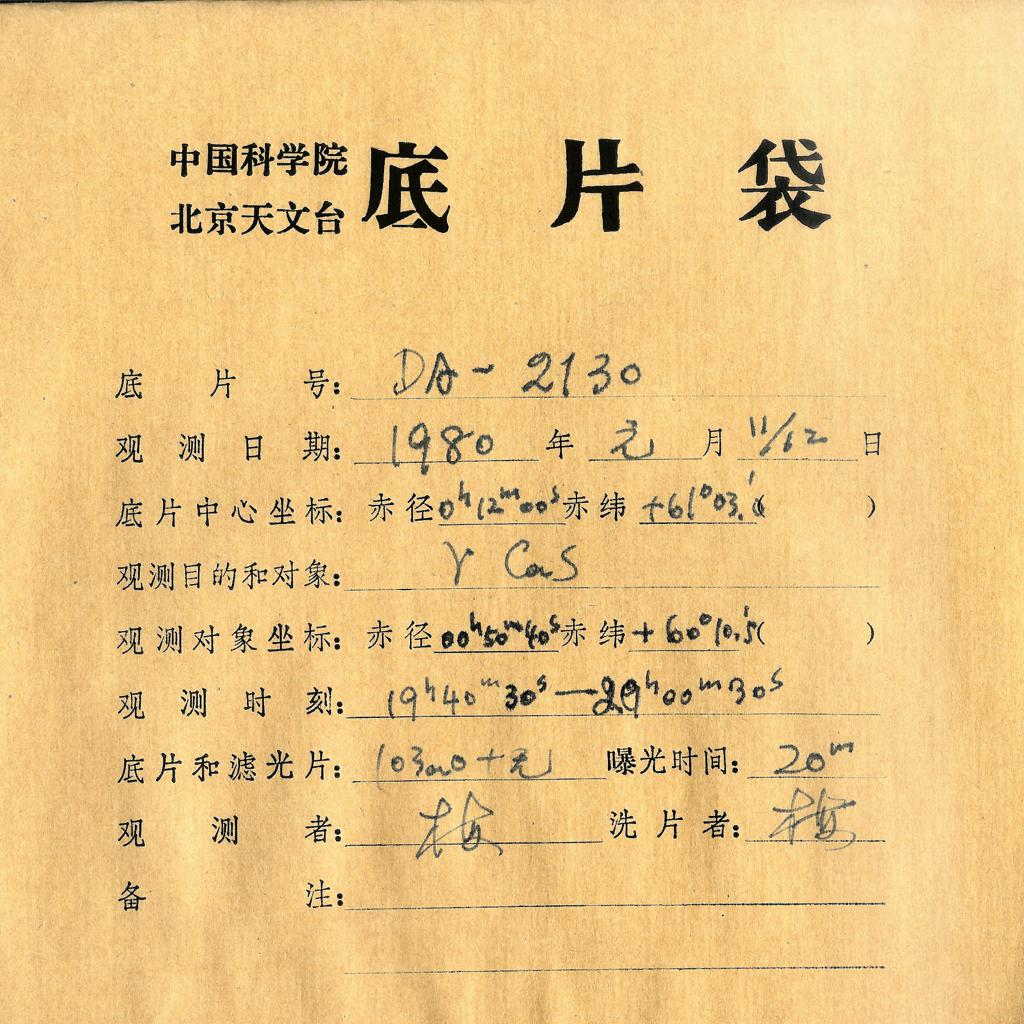 中国科学院
北京天文台
底片袋
底片号: DA-2130
观测日期: 1980 年 元 月 11/12 日
底片中心坐标: 赤径 0h12m00s 赤纬 +61°03.' ( )
观测目的和对象: γ Cas
观测对象坐标: 赤径 00h50m40s 赤纬 +60°10.'5 ( )
观测时刻: 19h40m30s—20h00m30s
底片和滤光片: 103aO+无 曝光时间: 20m
观测者: 梅 洗片者: 梅
备注: